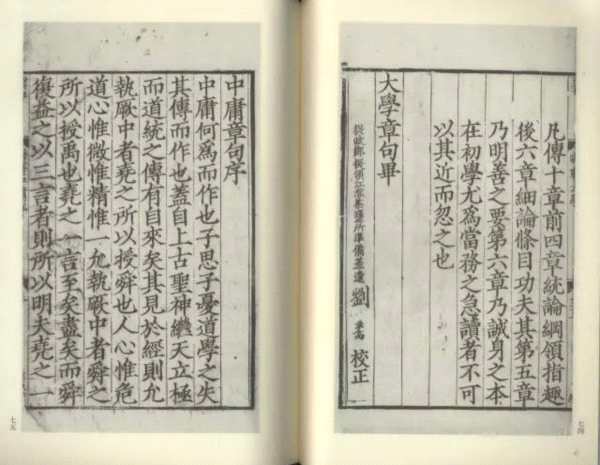 凡傳十章前四章統論綱領指趣
後六章細論條目功夫其第五章
乃明善之要第六章乃誠身之本
在初學尤為當務之急讀者不可
以其近而忽之也
大學章句畢
劉
校正
七四
中庸章句序
中庸何為而作也子思子憂道學之失
其傳而作也蓋自上古聖神繼天立極
而道統之傳有自來矣其見於經則允
執厥中者堯之所以授舜也人心惟危
道心惟微惟精惟一允執厥中者舜之
所以授禹也堯之一言至矣盡矣而舜
復益之以三言者則所以明夫堯之一
七五